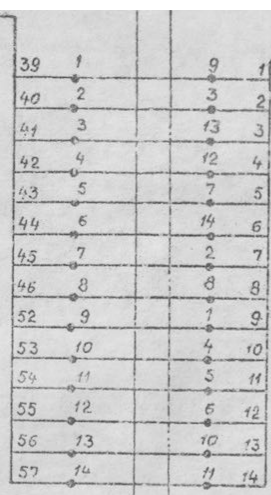 39 1 9 1
40 2 3 2
41 3 13 3
42 4 12 4
43 5 7 5
44 6 14 6
45 7 2 7
46 8 8 8
52 9 1 9
53 10 4 10
54 11 5 11
55 12 6 12
56 13 10 13
57 14 11 14